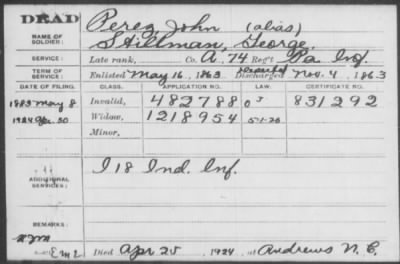 DEAD
Perez John (alias)
NAME OF SOLDIER:
Stillman, George,
SERVICE:
Late rank, Co. A, 74 Reg't Pa Inf.
TERM OF SERVICE:
Enlisted May 16, 1863 Discharged Nov. 4, 1863
DATE OF FILING. CLASS. APPLICATION NO. LAW. CERTIFICATE NO.
1883 May 8 Invalid, 482788 831292
1924 Apr. 30 Widow, 1218954 5-1-20
Minor,
ADDITIONAL SERVICES:
I 18 Ind. Inf.
REMARKS:
Died Apr 25, 1924, at Andrews N. C.